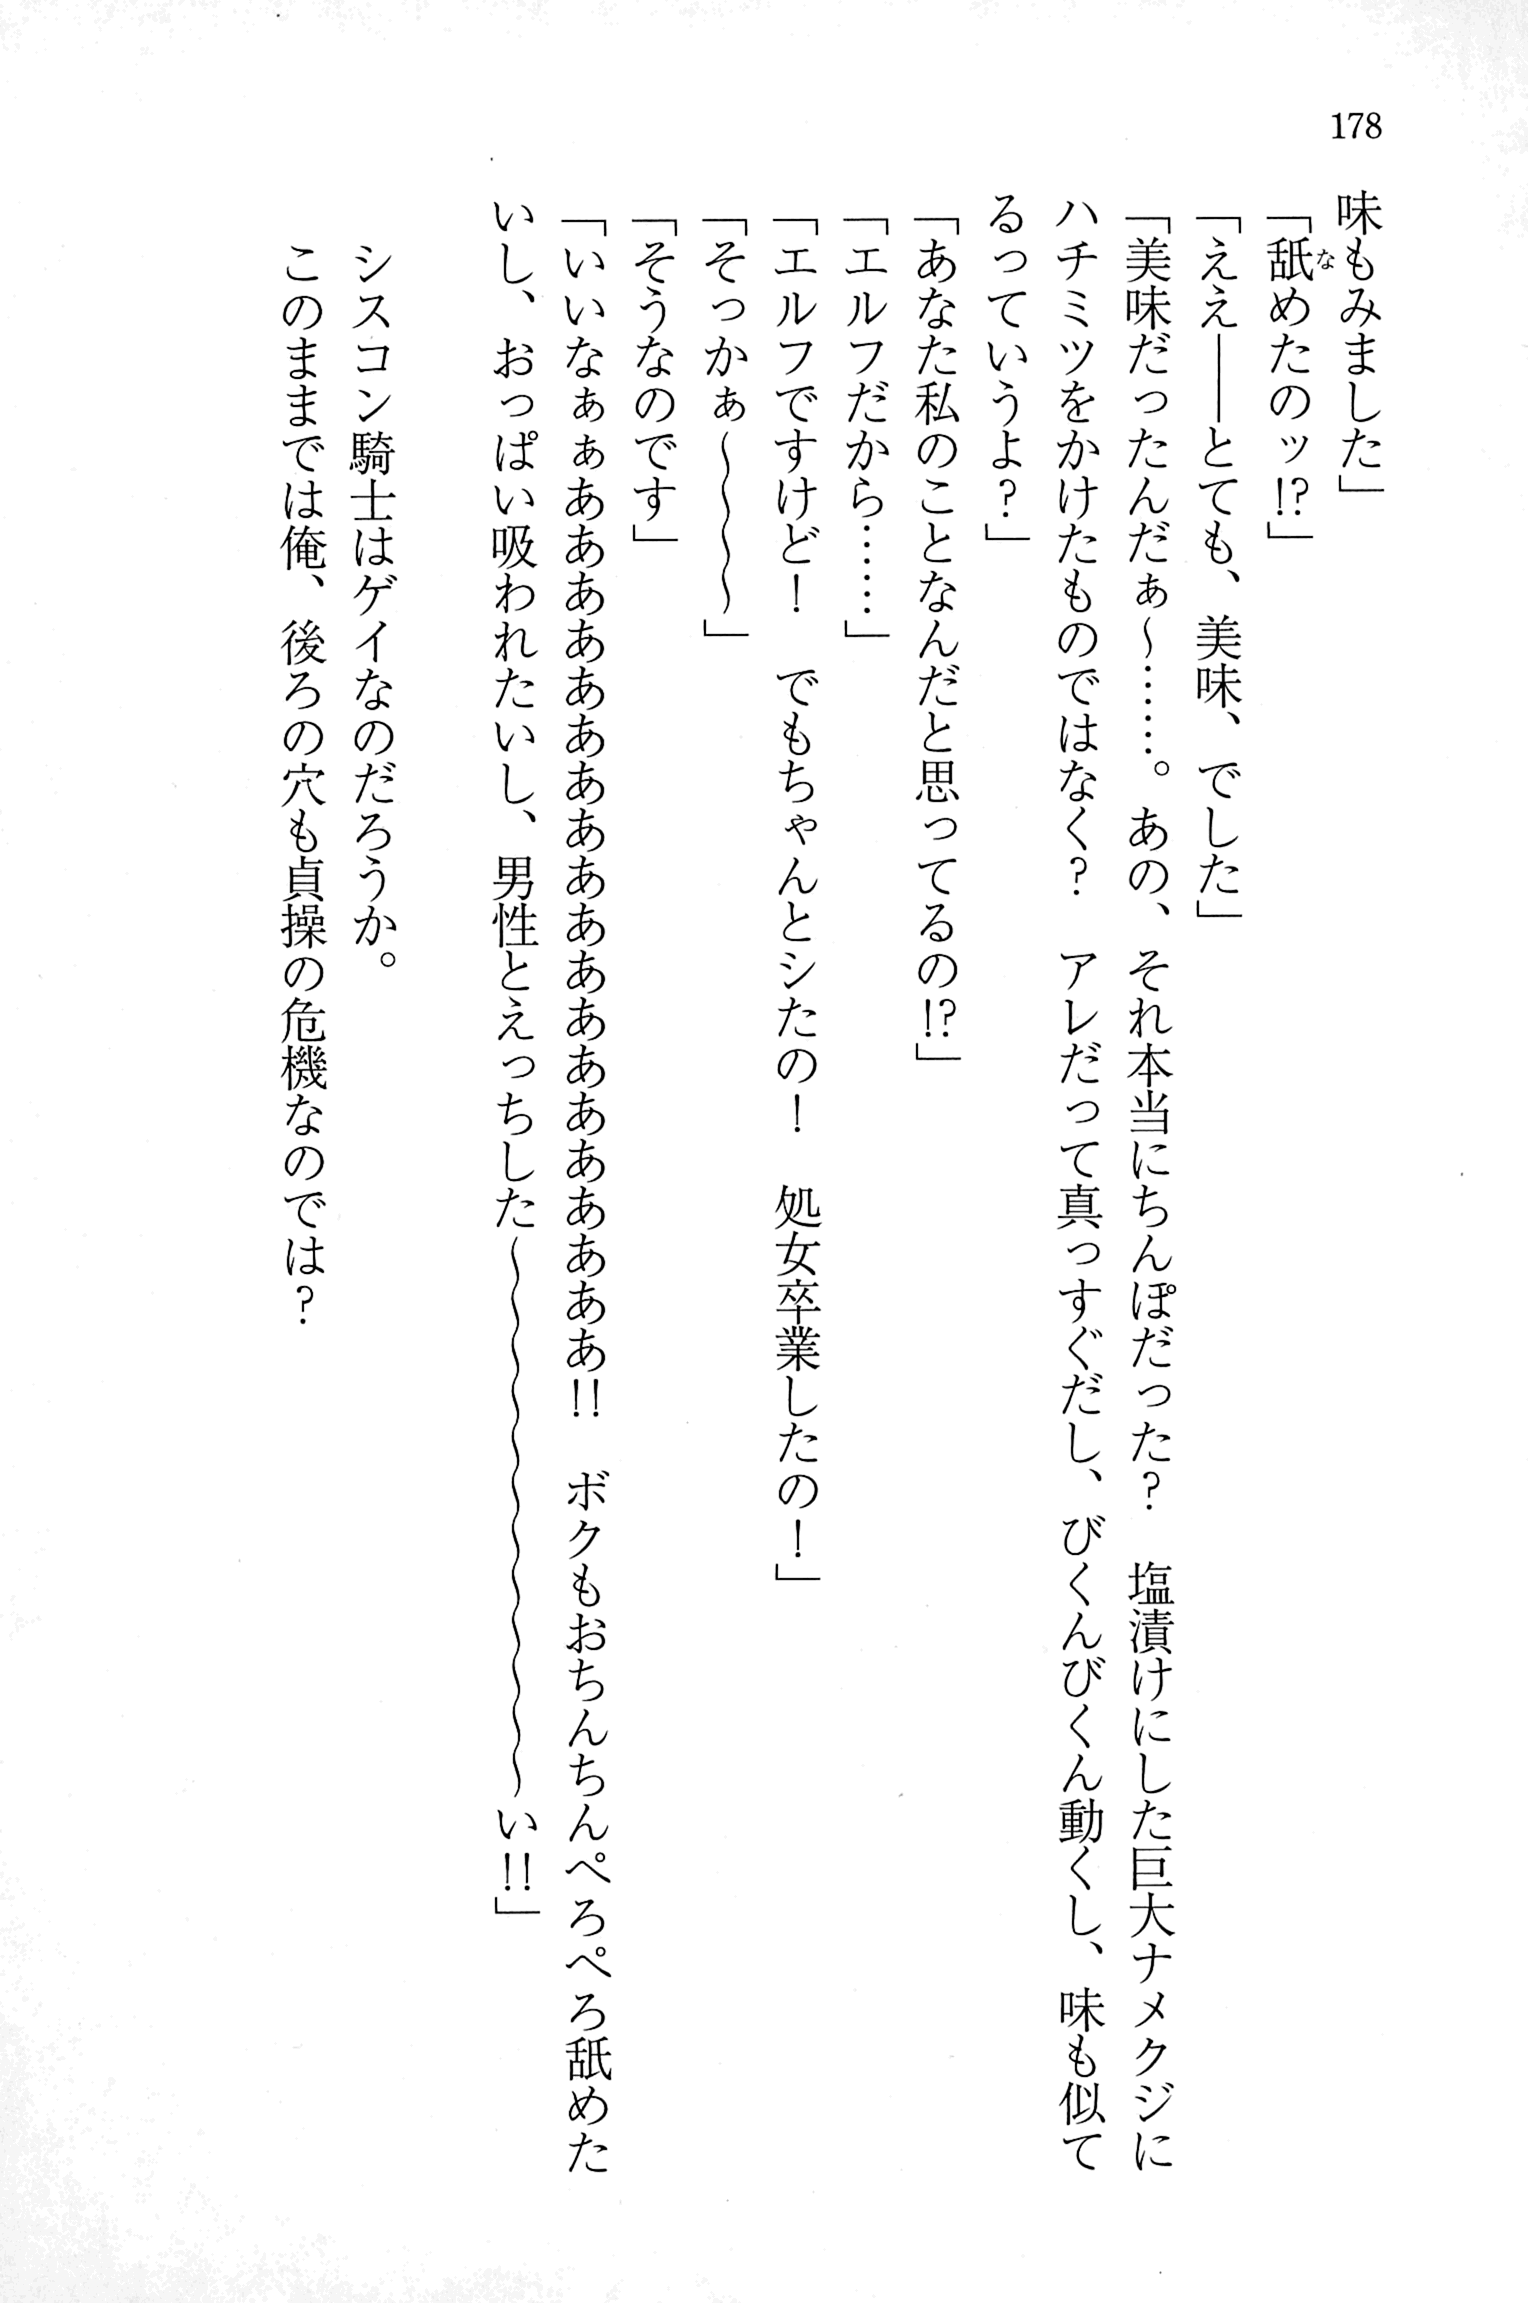 178
味もみました」
「舐めたのッ!?」
「ええ――とても、美味、でした」
「美味だったんだぁ～……。あの、それ本当にちんぽだった?　塩漬けにした巨大ナメクジに
ハチミツをかけたものではなく?　アレだって真っすぐだし、びくんびくん動くし、味も似て
るっていうよ?」
「あなた私のことなんだと思ってるの!?」
「エルフだから……」
「エルフですけど!　でもちゃんとシたの!　処女卒業したの!」
「そっかぁ～～～～」
「そうなのです」
「いいなぁぁああああああああああああああああああ!!　ボクもおちんちんぺろぺろ舐めた
いし、おっぱい吸われたいし、男性とえっちした～～～～～～～～～～～～い!!」
シスコン騎士はゲイなのだろうか。
このままでは俺、後ろの穴も貞操の危機なのでは?